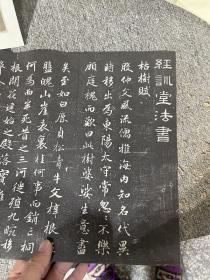 經訓堂法書
枯樹賦
殷仲文風流儒雅海內知名代異
時移出為東陽太守常忽忽不樂
顧庭槐而歎曰此樹婆娑生意盡
矣至如白鹿貞松青牛文梓根
盤魄山崖表裏桂何事而銷亡桐
何為而半死昔之三河徙植九畹移
根開花建始之殿落實睢